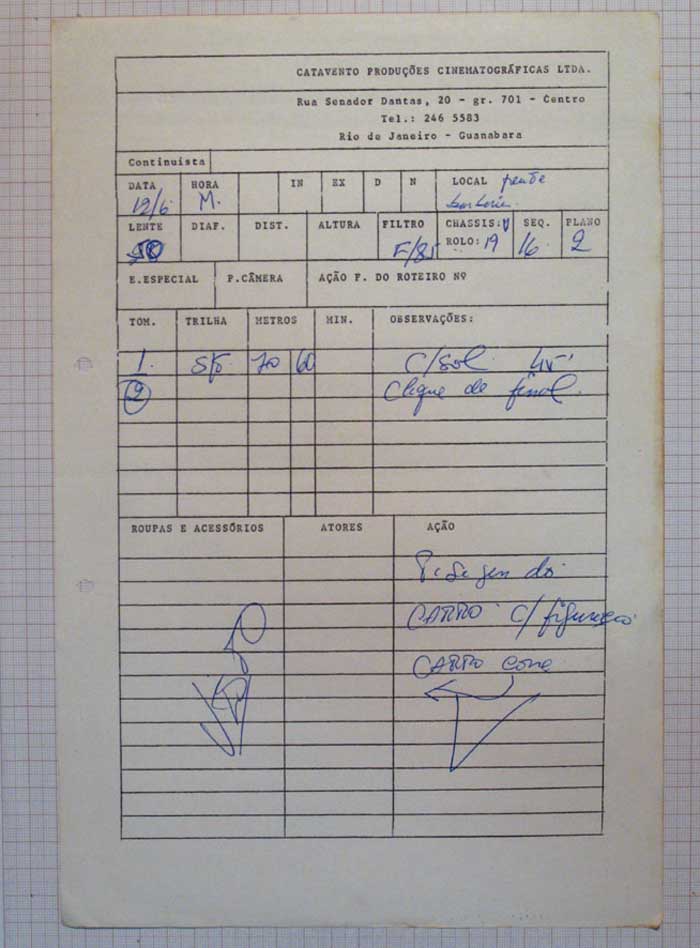 CATAVENTO PRODUÇÕES CINEMATOGRÁFICAS LTDA.
Rua Senador Dantas, 20 - gr. 701 - Centro
Tel.: 246 5583
Rio de Janeiro - Guanabara
Continuista
DATA HORA IN EX D N LOCAL
12/6 M.
LENTE DIAF. DIST. ALTURA FILTRO CHASSIS: SEQ. PLANO
50 F/85 ROLO: 19 16. 2
E.ESPECIAL P.CÂMERA AÇÃO P. DO ROTEIRO Nº
TOM. TRILHA METROS MIN. OBSERVAÇÕES:
1. 70 60 C/sol
2 Clique de final.
ROUPAS E ACESSÓRIOS ATORES AÇÃO
do
CARRO c/figuração
CARRO